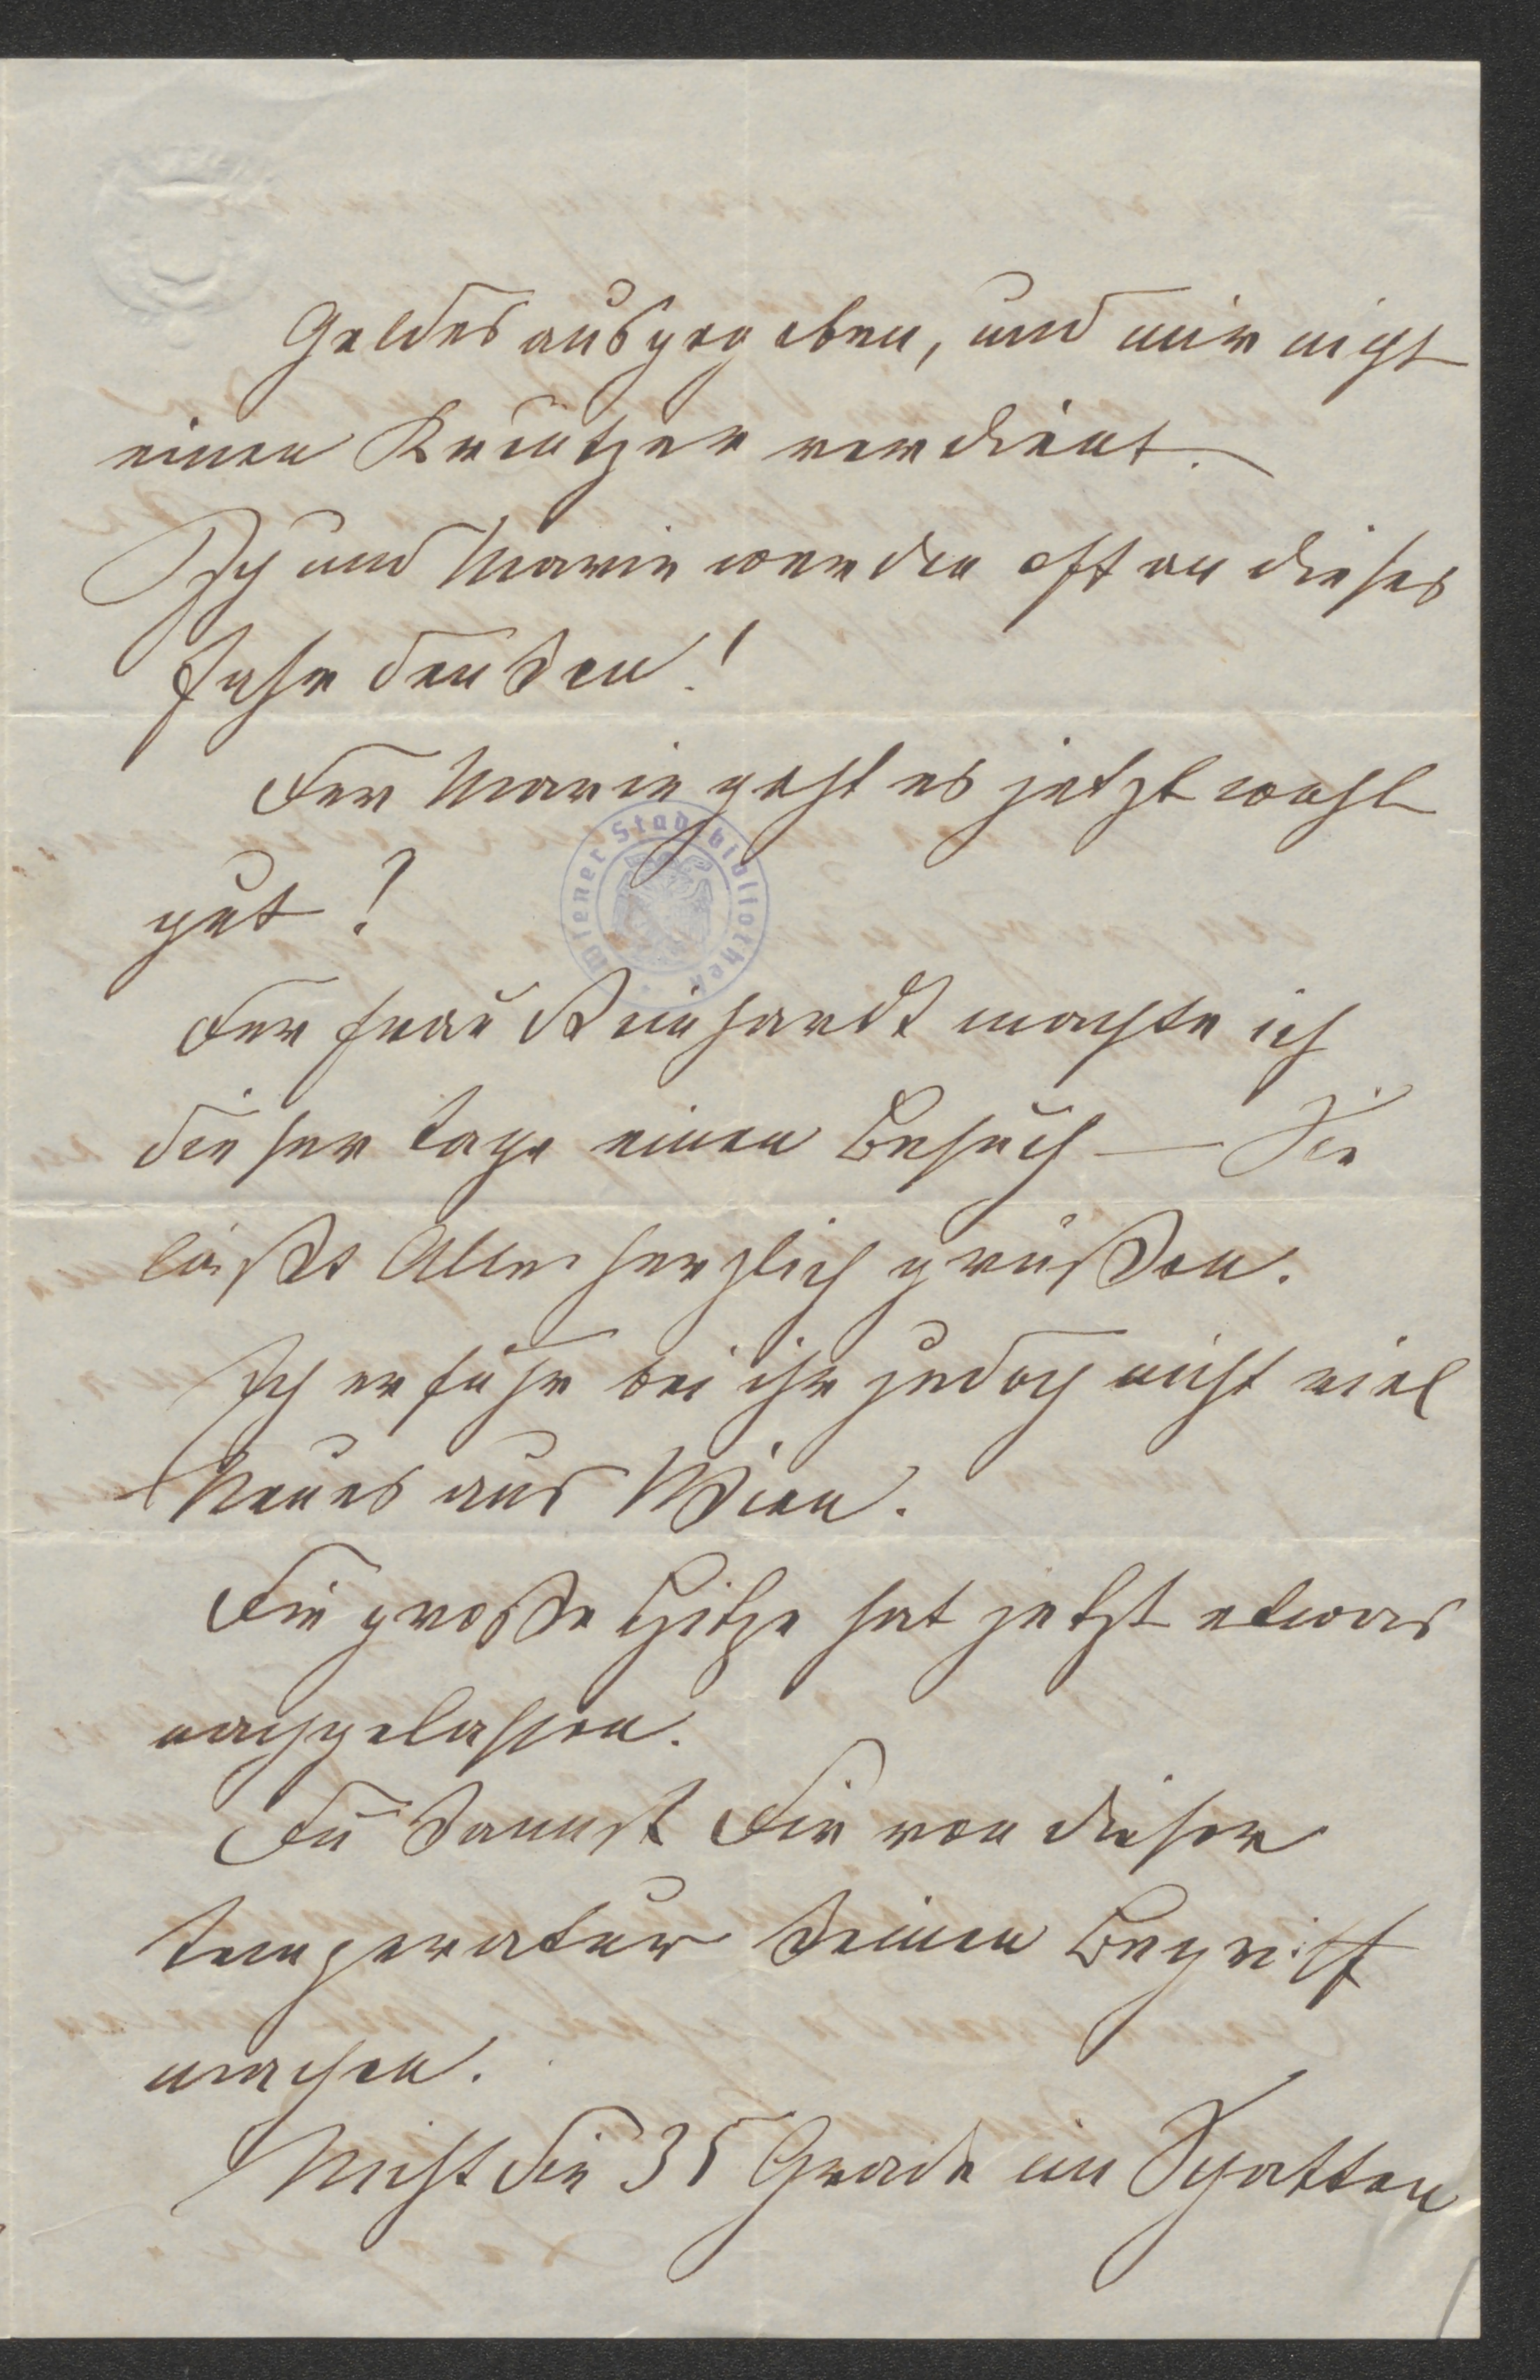 Geldes ausgegeben, und mir nicht
einen Kreutzer verdient.
Ich und Marie werden oft an dieses
Jahr denken!
Der Marie geht es jetzt wohl
gut?
Wiener Stadtbibliothek
Der Frau Reinhardt machte ich
dieser Tage einen Besuch — Sie
läßt Alle herzlich grüßen.
Ich erfuhr bei ihr jedoch nicht viel
Neues aus Wien.
Die große Hitze hat jetzt etwas
nachgelassen.
Du kannst Dir von dieser
Temperatur keinen Begriff
machen.
Nicht die 35 Grade im Schatten